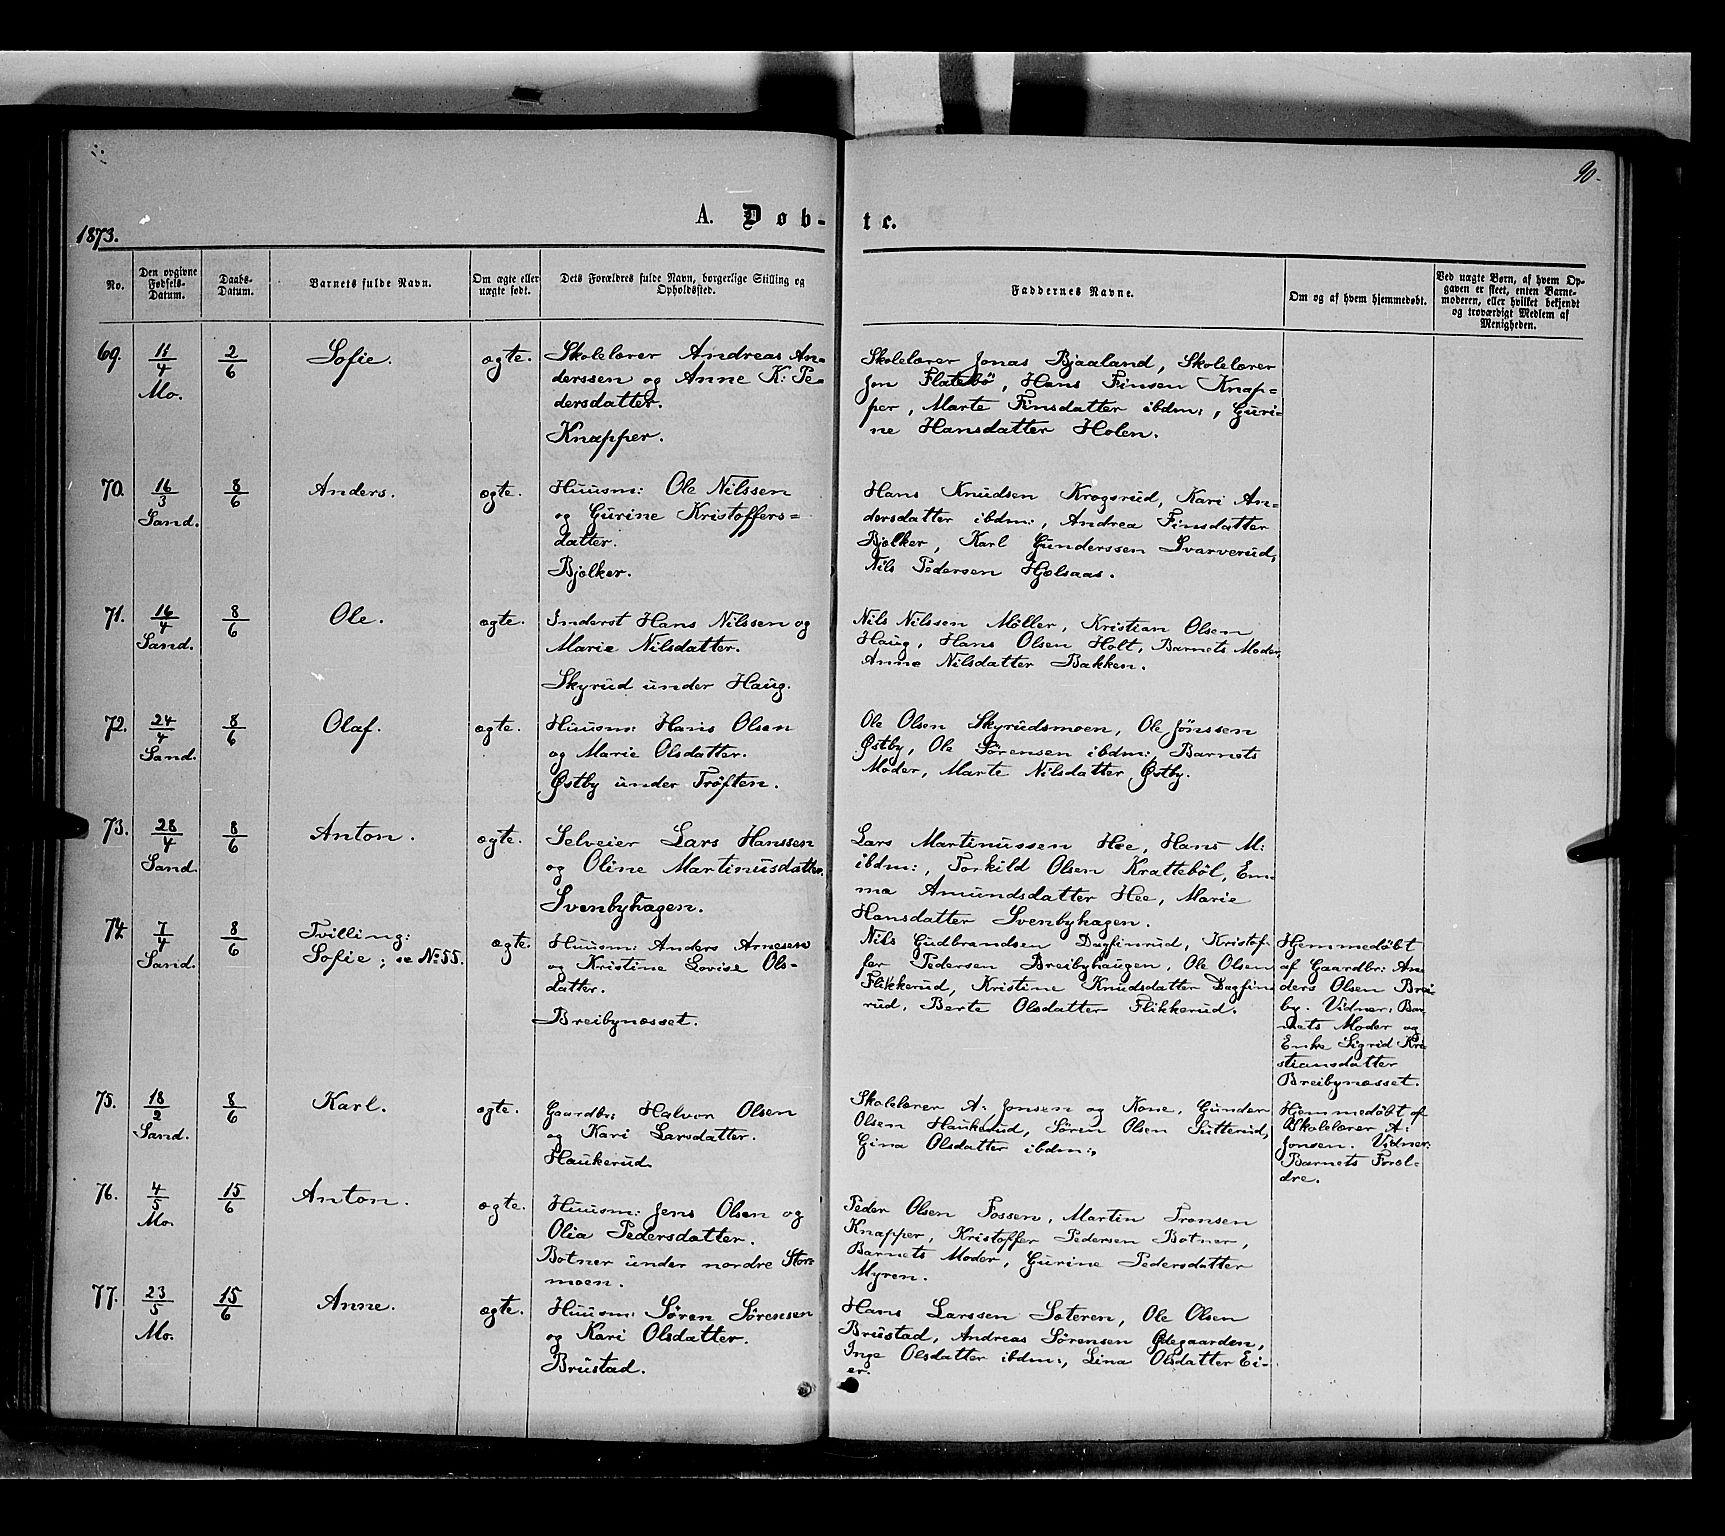 90.
A. Døb-te.
1873.
No.
Den opgivne
Fødsels-
Datum.
Daabs-
Datum.
Barnets fulde Navn.
Om ægte eller
uægte født.
Dets Forældres fulde Navn, borgerlige Stilling og
Opholdssted.
Faddernes Navne.
Om og af hvem hjemmedøbt.
Ved uægte Børn, af hvem Op-
gaven er skeet, enten Barne-
moderen, eller hvilket bekjendt
og troværdigt Medlem af
Menigheden.
69.
11/4
Mo.
2/6
Sofie.
ægte.
Skolelærer Andreas An-
derssen og Anne K: Pe-
dersdatter.
Knapper.
Skolelærer Jonas Bjaaland, Skolelærer
Jon Flatebø, Hans Finsen Knap-
per, Marte Finsdatter ibdm:, Guri-
ne Hansdatter Holen.
70.
16/3
Sand.
8/6
Anders.
ægte.
Huusm: Ole Nilssen
og Gurine Kristoffers-
datter.
Bjølker.
Hans Knudsen Krogsrud, Kari An-
dersdatter ibdm:, Andrea Finsdatter
Bjølker, Karl Gunderssen Svarverud,
Nils Pedersen Hjelsaas.
71.
16/4
Sand.
8/6
Ole.
ægte.
Inderst Hans Nilssen og
Marie Nilsdatter.
Skyrud under Haug.
Nils Nilssen Møller, Kristian Olsen
Haug, Hans Olsen Holt, Barnets Moder,
Anne Nilsdatter Bakken.
72.
24/4
Sand.
8/6
Olaf.
ægte.
Huusm: Hans Olsen
og Marie Olsdatter.
Østby under Trøften.
Ole Olsen Skyrudsmoen, Ole Jønssen
Østby, Ole Sørensen ibdm:, Barnets
Moder, Marte Nilsdatter Østby.
73.
28/4
Sand.
8/6
Anton.
ægte.
Selveier Lars Hanssen
og Oline Martinusdatter.
Svenbyhagen.
Lars Martinussen Hee, Hans M:
ibdm:, Torkild Olsen Krattebøl, Em-
ma Amundsdatter Hee, Marie
Hansdatter Svenbyhagen.
74.
7/4
Sand.
8/6
Tvilling:
Sofie; se No 55.
ægte.
Huusm: Anders Arnesen
og Kristine Lovise Ols-
datter.
Breibynæsset.
Nils Gudbrandsen Dagfinrud, Kristof-
fer Pedersen Breibyhaugen, Ole Olsen
Flikkerud, Kristine Knudsdatter Dagfin
rud, Berte Olsdatter Flikkerud.
Hjemmedøbt
af Gaardbr: An-
ders Olsen Brei-
by. Vidner: Bar-
nets Moder og
Enke Sigrid Kri-
stiansdatter
Breibynæsset.
75.
18/2
Sand.
8/6
Karl.
ægte.
Gaardbr: Halvor Olsen
og Kari Larsdatter.
Haukerud.
Skolelærer A: Jonsen og Kone, Gunder
Olsen Haukerud, Søren Olsen Sutterud,
Gina Olsdatter ibdm:,
Hjemmedøbt af
Skolelærer A:
Jonsen. Vidner:
Barnets Foræl-
dre.
76.
4/5
Mo.
15/6
Anton.
ægte.
Huusm: Jens Olsen og
Olia Pedersdatter.
Botner under nordre Stor-
moen.
Peder Olsen Fossen, Martin Tronsen
Knapper, Kristoffer Pedersen Botner,
Barnets Moder, Gurine Pedersdatter
Myren.
77.
23/5
Mo.
15/6
Anne.
ægte.
Huusm: Søren Sørensen
og Kari Olsdatter.
Brustad.
Hans Larssen Sæteren, Ole Olsen
Brustad, Andreas Sørensen Ødegaarden,
Inge Olsdatter ibdm:, Lina Olsdatter Ei-
er.